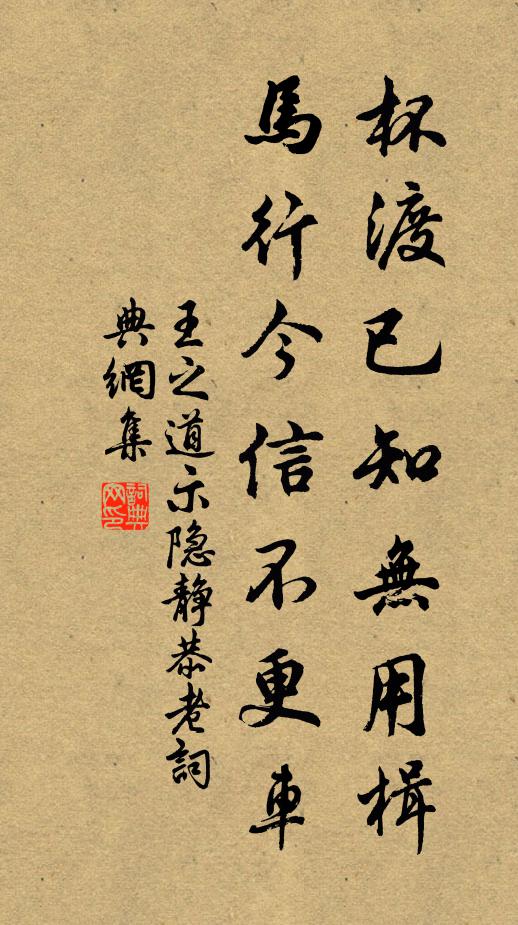 杯渡已知無用楫
馬行今信不更車
王之道示隐静恭老詞
典網集
詞典
网印